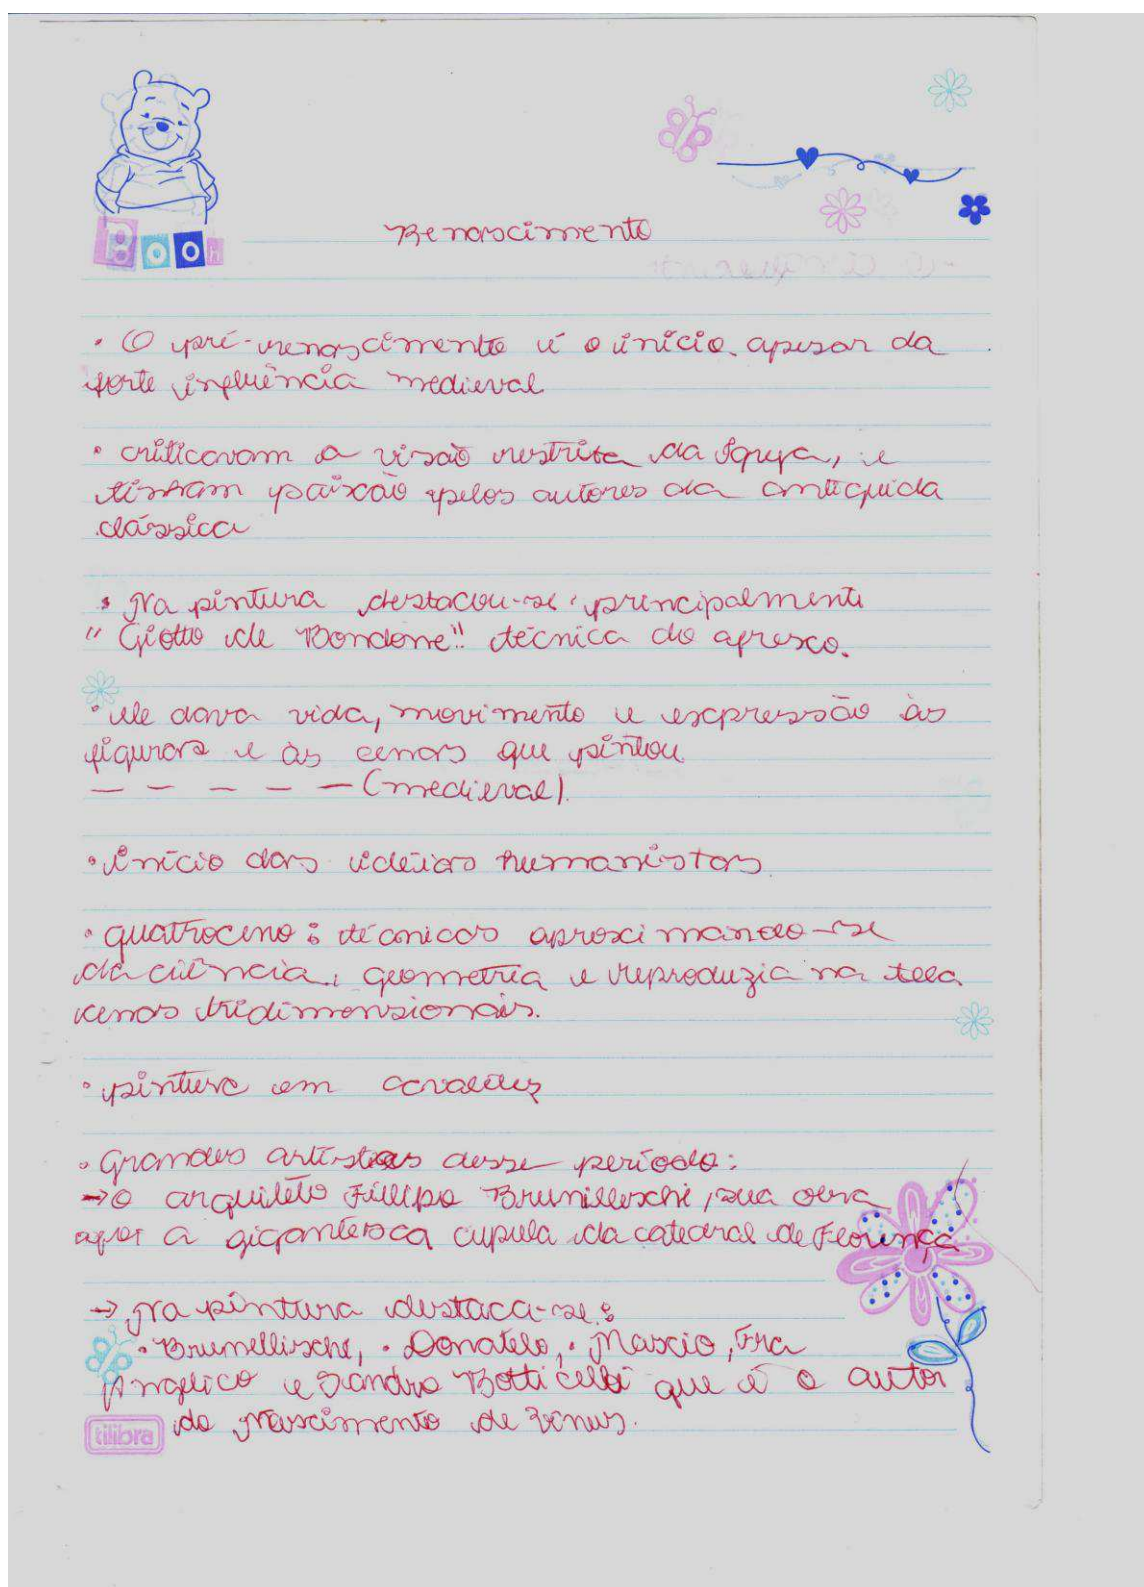 POOH
Renascimento
• O pré-renascimento é o início. apesar da
forte influência medieval
• criticavam a visão restrita da Igreja, e
tinham paixão pelos autores da antiguida
clássica
• Na pintura destacou-se principalmente
"Giotto de Bondone" técnica do afresco.
• ele dava vida, movimento e expressão às
figuras e às cenas que pintou
— — — — — — (medieval).
• início das idéias humanistas
• quatroceno: técnicas aproximando-se
da ciência, geometria e reproduzia na tela
cenas tridimensionais.
• pintura em cavaletes
• Grandes artistas desse período:
→ o arquiteto Fillipo Brunilleschi, sua obra
a gigantesca cupula da catedral de Florença
→ Na pintura destaca-se:
• Brunellische, • Donatelo, • Mascio, Fra
Angelico e Sandro Botticelli que é o autor
do Nascimento de Vênus.
tilibra